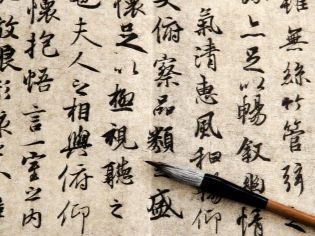 雖無絲竹管弦
亦足以暢敘幽情
氣清惠風和暢仰
大俯察品類盛
懷足以極視聽之
也夫人之相與俯仰
懷抱悟言一室之內
放浪形骸